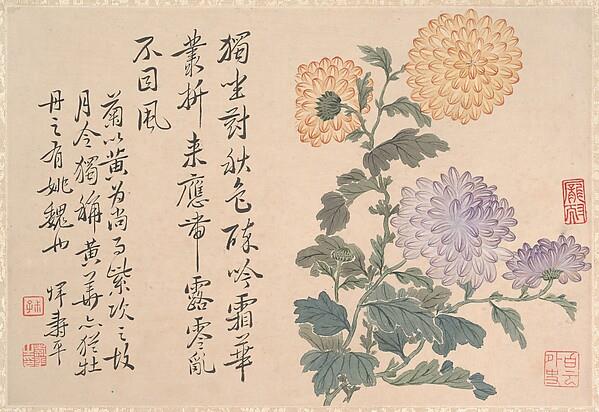 獨坐對秋色醉吟霜華
叢折来應帶露零亂
不因風
菊以黄为尚而紫次之故
月令獨稱黄華亦猶牡
丹之有姚魏也
惲壽平
白雲外史